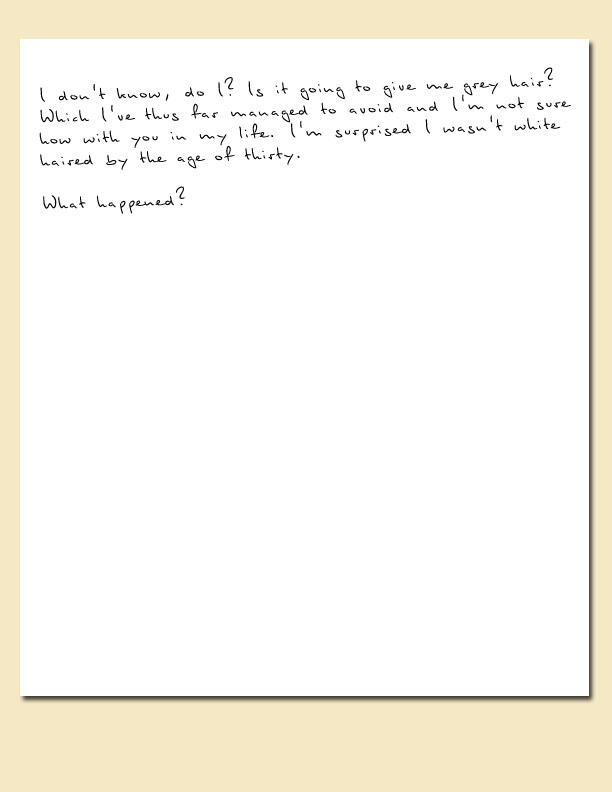 I don't know, do I? Is it going to give me grey hair?
Which I've thus far managed to avoid and I'm not sure
how with you in my life. I'm surprised I wasn't white
haired by the age of thirty.
What happened?